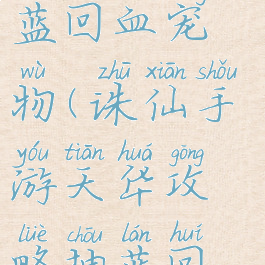 蓝回血宠
wù zhū xiān shǒu
物(诛仙手
yóu tiān huá gōng
游天华攻
lüè chōu lán huí
略抽蓝回